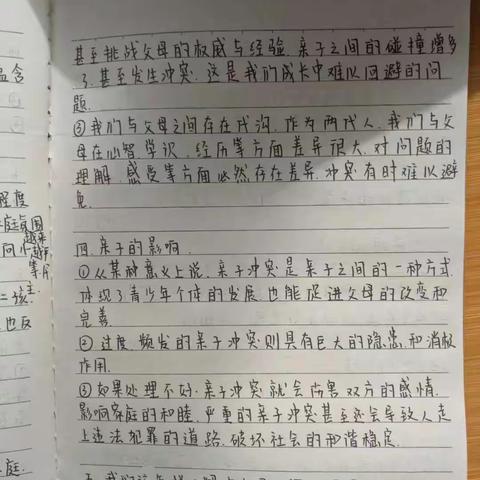 甚至挑战父母的权威与经验.亲子之间的碰撞增多
了.甚至发生冲突.这是我们成长中难以回避的问
题.
③我们与父母之间存在代沟.作为两代人.我们与父
母在心智.学识.经历等方面差异很大.对问题的
理解.感受等方面必然存在差异.冲突有时难以避
免.
四.亲子的影响.
①从某种意义上说.亲子冲突是亲子之间的一种方式.
体现了青少年个体的发展.也能促进父母的改变和
完善
②过度.频发的亲子冲突则具有巨大的隐患和消极
作用.
③如果处理不好.亲子冲突就会伤害双方的感情.
影响家庭的和睦.严重的亲子冲突甚至还会导致人走
上违法犯罪的道路.破坏社会的和谐稳定.
包含
程度
也反
庭.